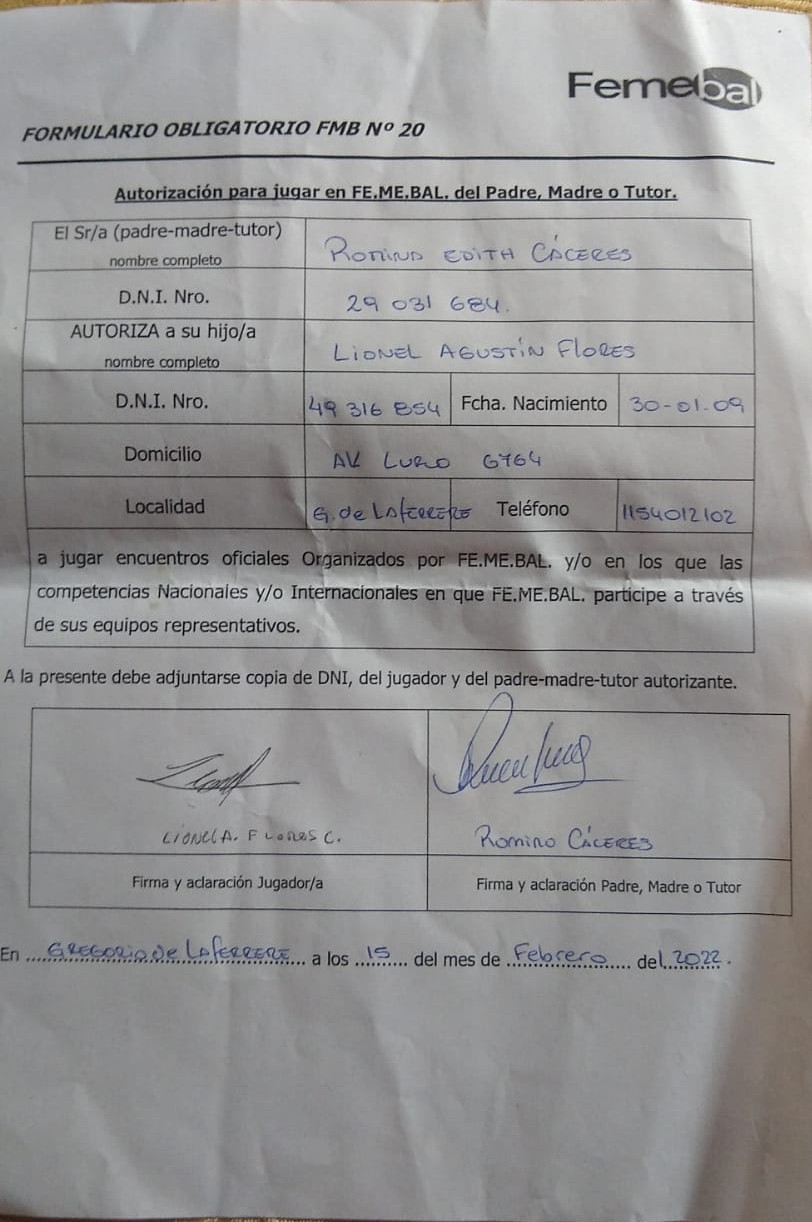 Femebal
FORMULARIO OBLIGATORIO FMB Nº 20
Autorización para jugar en FE.ME.BAL. del Padre, Madre o Tutor.
El Sr/a (padre-madre-tutor)
nombre completo
Romina EDITH CÁCERES
D.N.I. Nro.
29 031 684.
AUTORIZA a su hijo/a
nombre completo
LIONEL AGUSTÍN FLORES
D.N.I. Nro.
49 316 854
Fcha. Nacimiento
30-01-09
Domicilio
AV. LURO 6764
Localidad
G. de LAFERRERE
Teléfono
1154012102
a jugar encuentros oficiales Organizados por FE.ME.BAL. y/o en los que las
competencias Nacionales y/o Internacionales en que FE.ME.BAL. participe a través
de sus equipos representativos.
A la presente debe adjuntarse copia de DNI, del jugador y del padre-madre-tutor autorizante.
LIONEL A. FLORES C.
Romina CÁCERES
Firma y aclaración Jugador/a
Firma y aclaración Padre, Madre o Tutor
En GREGORIO de LAFERRERE a los 15 del mes de Febrero del 2022.